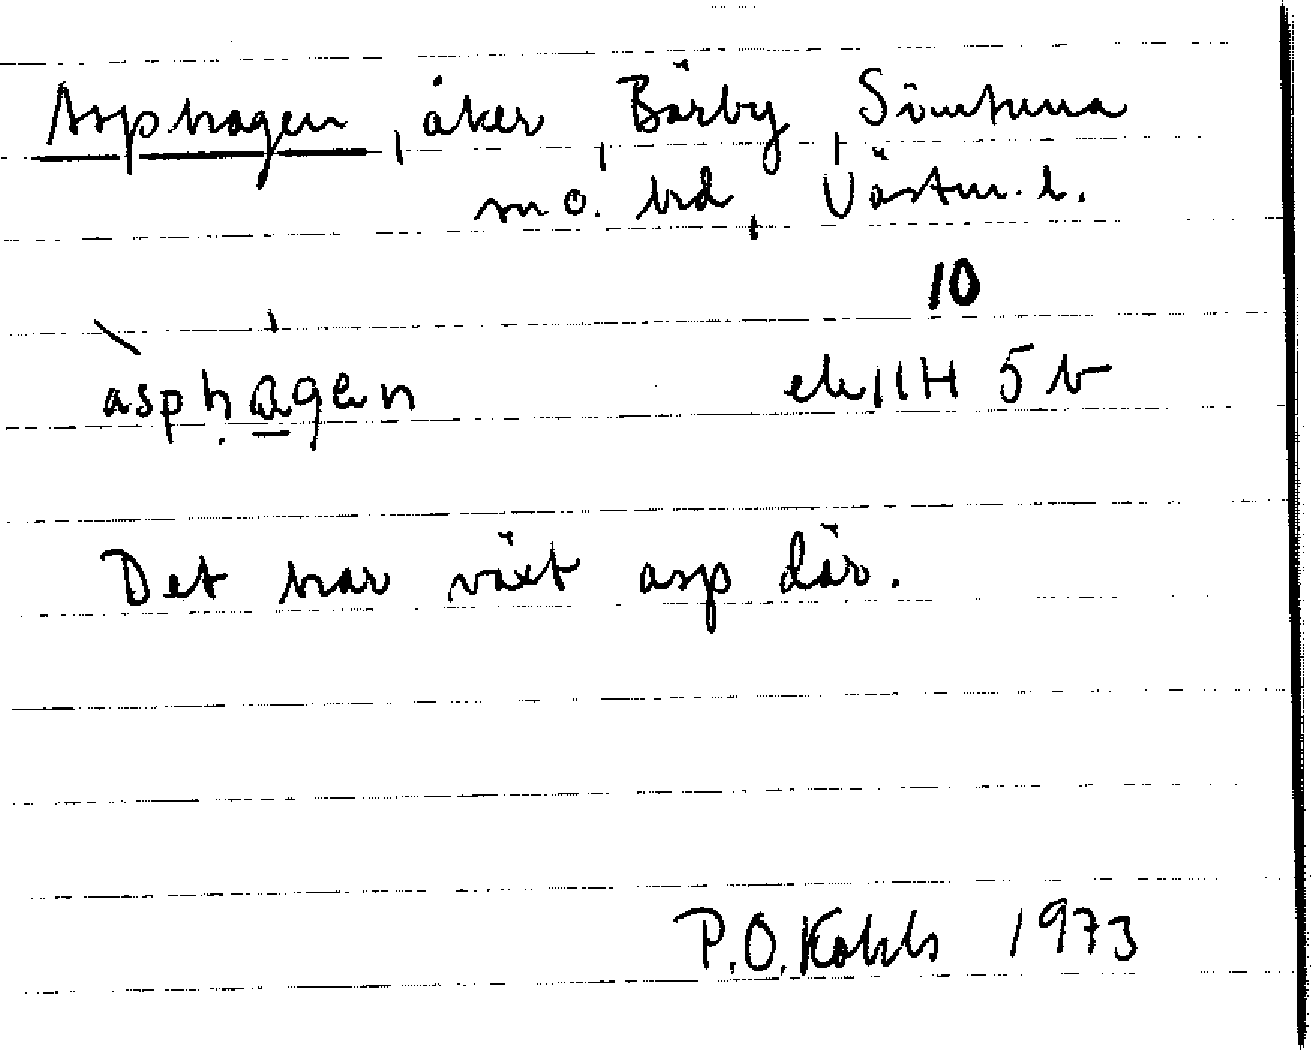 Asphagen, åker, Bärby, Simtuna
sn o. hd, Västm. l.
10
àsphagen ek 11H 5b
Det har växt asp där.
P.O. 1973